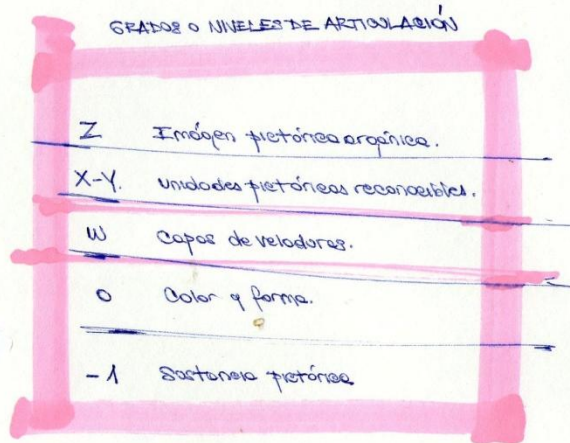 GRADOS O NIVELES DE ARTICULACIÓN
Z Imágen pictórica orgánica.
X-Y. unidades pictóricas reconocibles.
W Capas de veladuras.
0 Color y forma.
-1 Sustancia pictórica